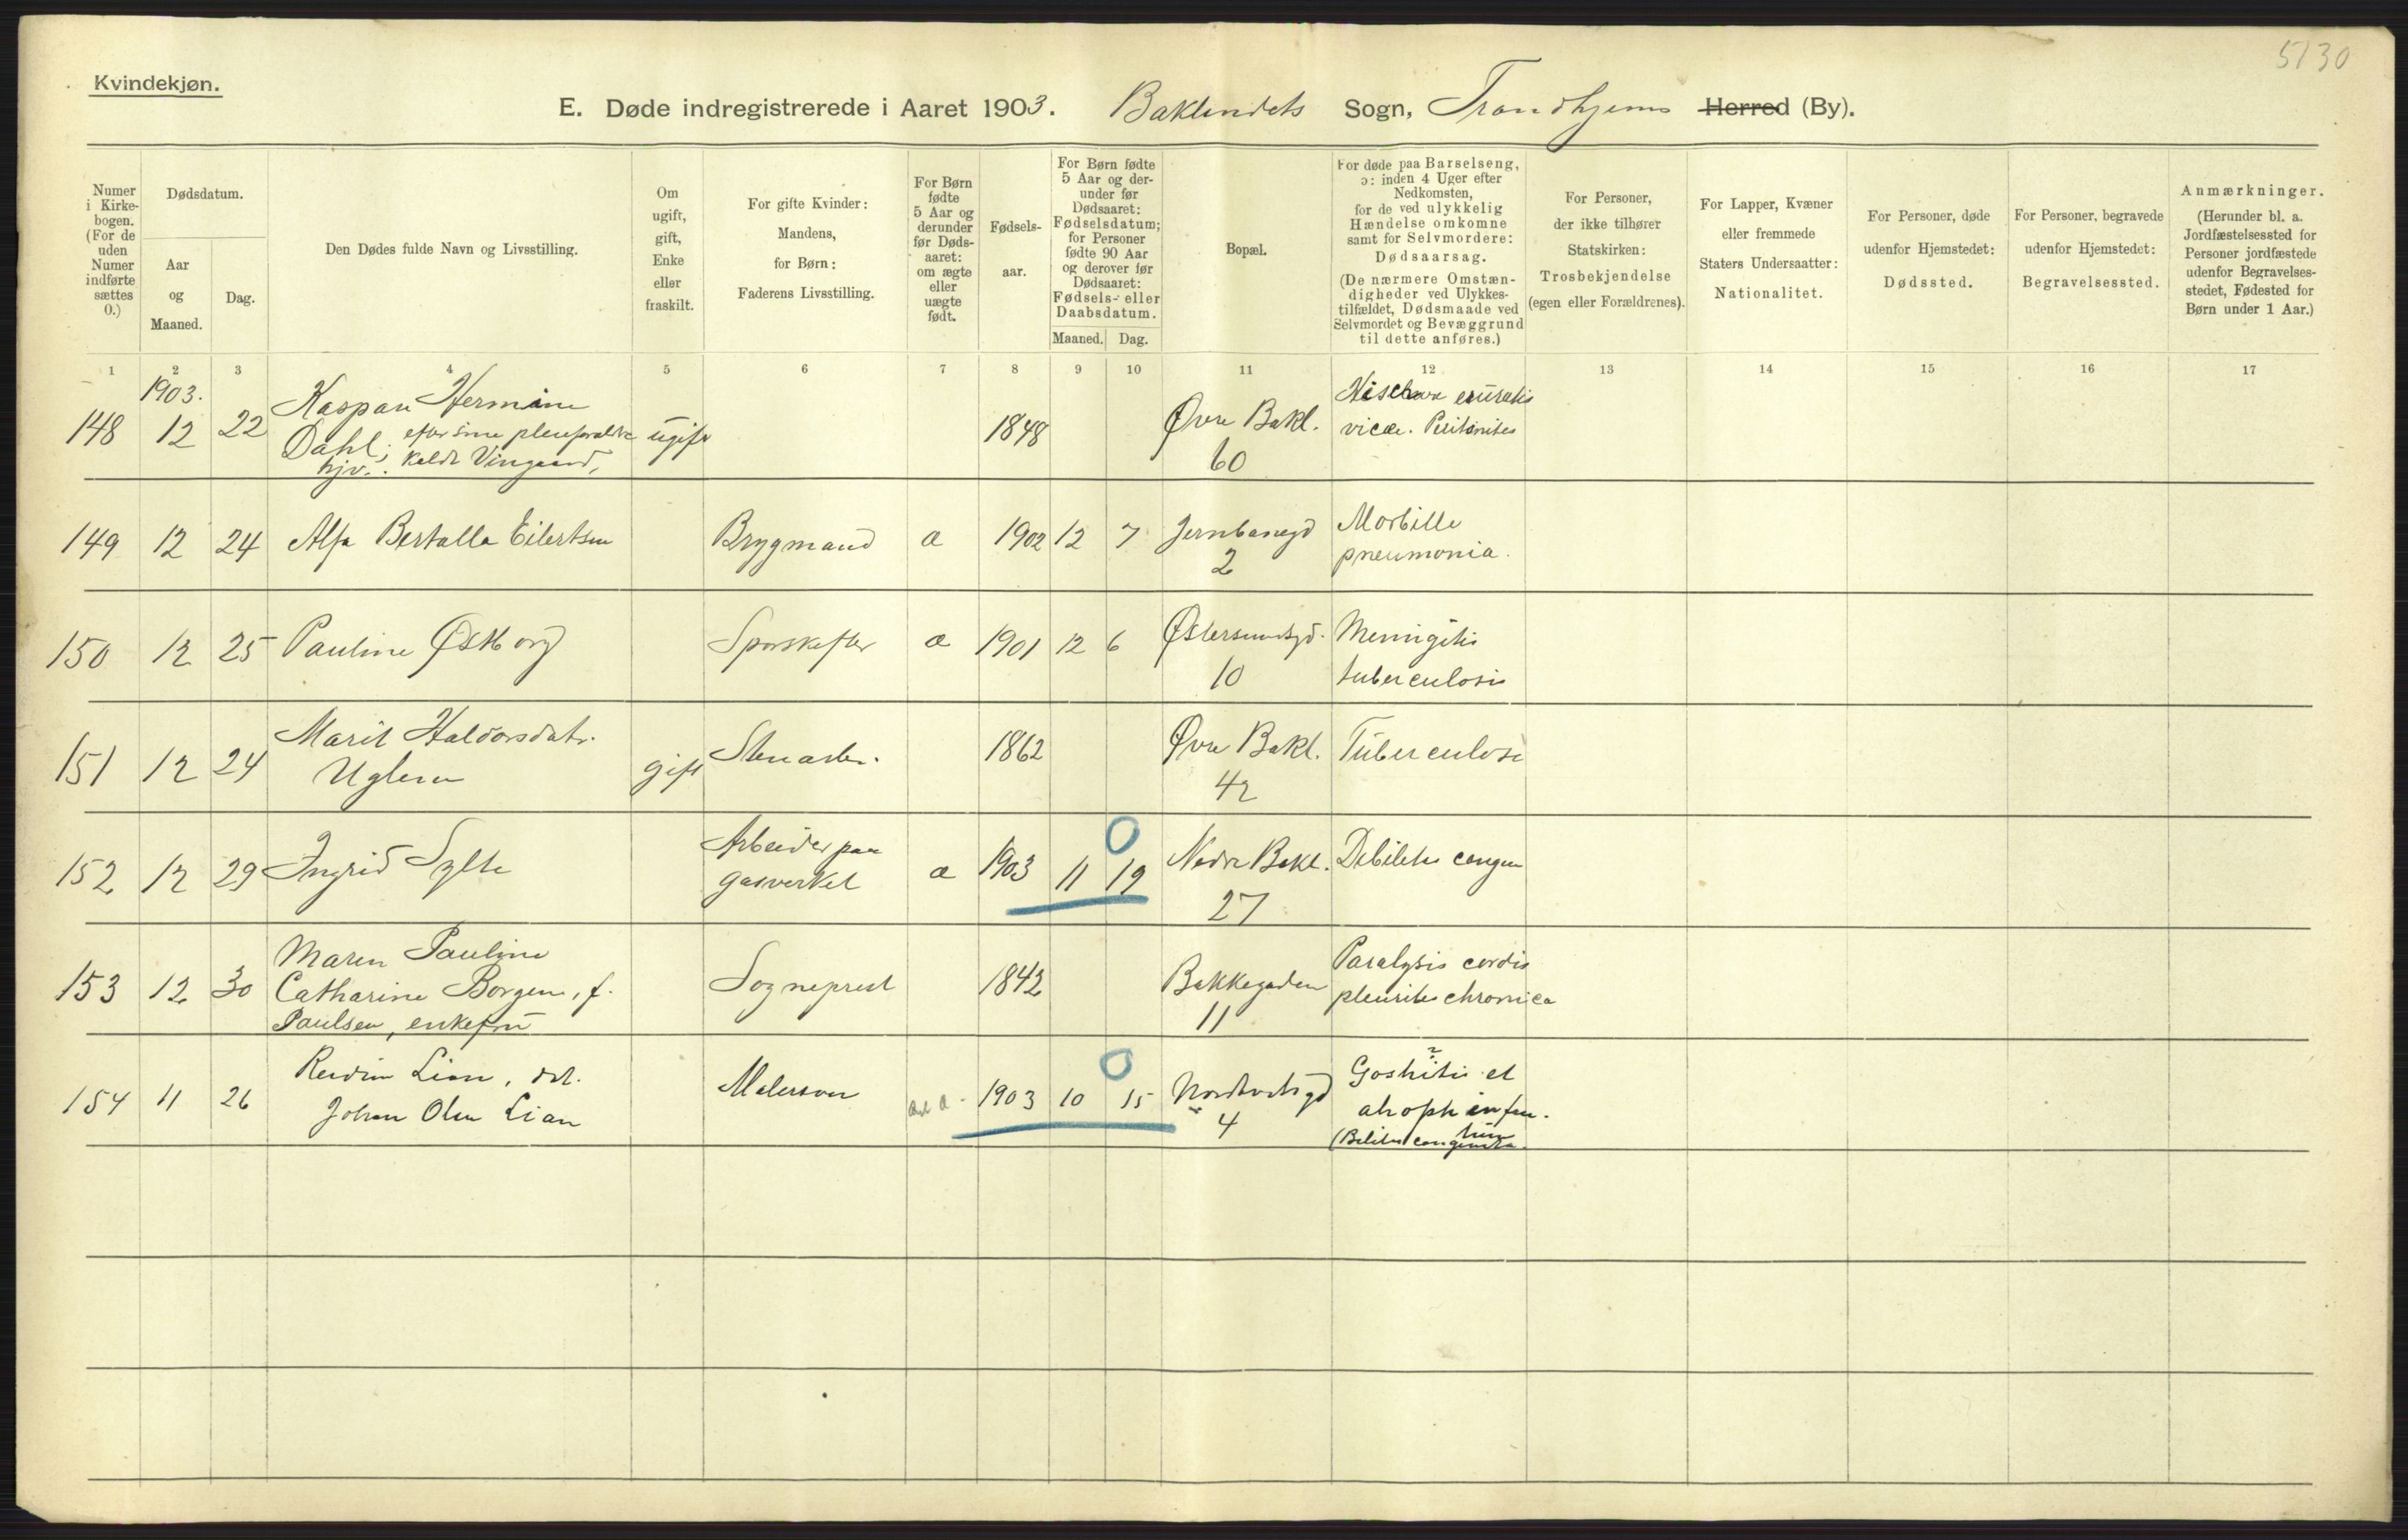 5130
Kvindekjøn.
E. Døde indregistrerede i Aaret 1903. Baklandets Sogn, Trondhjems Herred (By).
Numer
i Kirke-
bogen.
(For de
uden
Numer
indførte
sættes
0.)
Dødsdatum.
Aar
og
Maaned.
Dag.
Den Dødes fulde Navn og Livsstilling.
Om
ugift,
gift,
Enke
eller
fraskilt.
For gifte Kvinder:
Mandens,
for Børn:
Faderens Livsstilling.
For Børn
fødte
5 Aar og
derunder
før Døds-
aaret:
om ægte
eller
uægte
født.
Fødsels-
aar.
For Børn fødte
5 Aar og der-
under før
Dødsaaret:
Fødselsdatum;
for Personer
fødte 90 Aar
og derover før
Dødsaaret:
Fødsels- eller
Daabsdatum.
Maaned. Dag.
Bopæl.
For døde paa Barselseng,
ɔ: inden 4 Uger efter
Nedkomsten,
for de ved ulykkelig
Hændelse omkomne
samt for Selvmordere:
Dødsaarsag.
(De nærmere Omstæn-
digheder ved Ulykkes-
tilfældet, Dødsmaade ved
Selvmordet og Bevæggrund
til dette anføres.)
For Personer,
der ikke tilhører
Statskirken:
Trosbekjendelse
(egen eller Forældrenes).
For Lapper, Kvæner
eller fremmede
Staters Undersaatter:
Nationalitet.
For Personer, døde
udenfor Hjemstedet:
Dødssted.
For Personer, begravede
udenfor Hjemstedet:
Begravelsessted.
Anmærkninger.
(Herunder bl. a.
Jordfæstelsessted for
Personer jordfæstede
udenfor Begravelses-
stedet, Fødested for
Børn under 1 Aar.)
1 2 3 4 5 6 7 8 9 10 11 12 13 14 15 16 17
1903.
148 12 22 Kaspara Hermine
Dahl; efter sine
hjv. kaldt Vingaard,
ugift 1848 Øvre Bakl.
60
Peritonites
149 12 24 Alfa Bertalla Eilertsen Brygmand a 1902 12 7 Jernbanegd
2
Morbille
pneumonia.
150 12 25 Pauline Østborg Sporskifter a 1901 12 6 Østersundsgd.
10
Meningitis
tuberculosis
151 12 24 Marit Haldorsdatr.
Uglem
gift Stenarb. 1862 Øvre Bakl.
42
Tuberculose
152 12 29 Ingrid Sylte Arbeider paa
gasverket
a 1903 11 19 Nedre Bakl.
27
Debilitas congen
153 12 30 Maren Pauline
Catharine Borgen, f.
Paulsen, enkefru
Sogneprest 1842 Bakkegaden
11
Paralysis cordis
pleuritis chronica
154 11 26 Reidun Lian, dtr.
Johan Olsen Lian
Malersvend 1903 10 15
4
?
et
atroph infan.